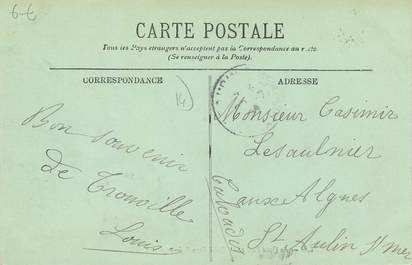 6-6
CARTE POSTALE
Tous les Pays étrangers n'acceptent pas la Correspondance au recto
(Se renseigner à la Poste).
CORRESPONDANCE
14
Bon souvenir
de Trouville
Louis
ADRESSE
Monsieur Casimir
Lesaulnier
aux Algues
St Aubin s/ mer
Calvados